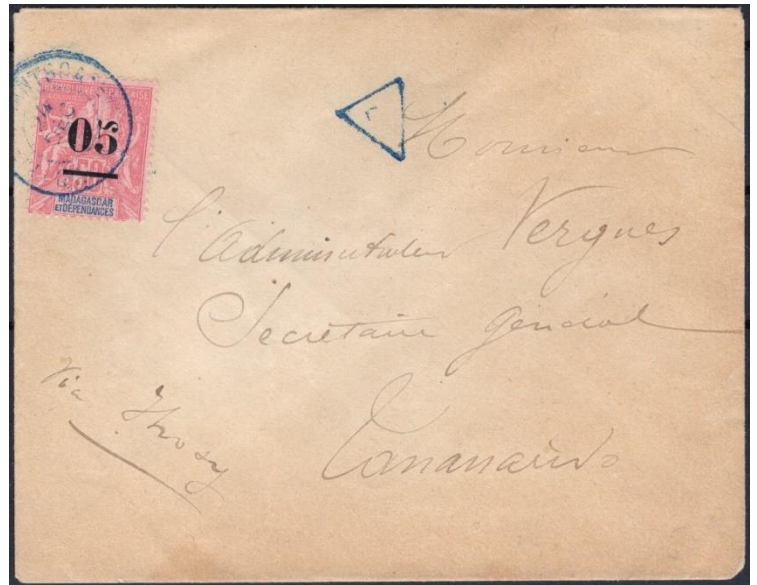 05
50
MADAGASCAR
ET DÉPENDANCES
Monsieur
l'Administrateur Vergnes
Secrétaire général
Tananarive
Via Ihosy